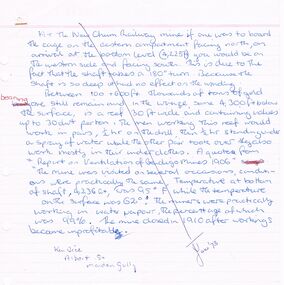 At the New Chum Railway mine if one was to board
the cage on the eastern compartment facing north, on
arrival at the bottom level (4,225ft) you would be on
the western side and facing south. This is due to the
fact that the shaft takes a 180° turn. Because the
shaft is so deep it had no effect on the winding.
Between 100 to 600ft thousands of tons of gold
bearing
ore still remain and in the winze, some 4,300ft below
the surface, is a reef 30ft wide and carrying values
up to 30dwt per ton. The men working this reef would
work in pairs, ½hr on the drill then ½hr standing under
a spray of water while the other pair took over they also
work mostly in their underclothes. A quote from
"Report on Ventilation of Bendigo Mines 1906"
"The mine was visited on several occasions, condit-
ions were practically the same. Temperature at bottom
of shaft, 4236ft, was 95° F while the temperature
on the surface was 62°. The miners were practically
working in water vapour, the percentage of which
was 99%. The mine closed in 1910 after workings
became unprofitable.
June '73
Albert St.